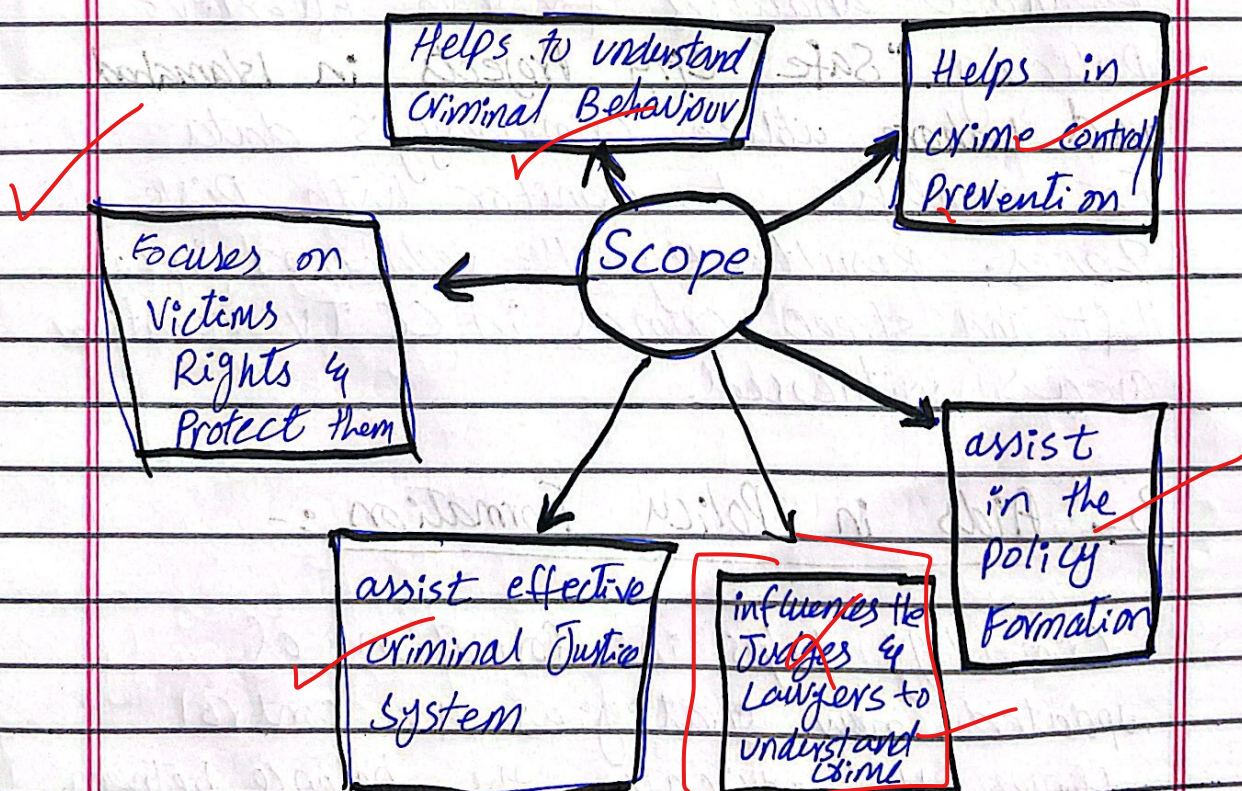 Helps to understand
Criminal Behaviour
Helps in
crime control/
Prevention
Scope
Focuses on
Victims
Rights &
Protect them
assist
in the
Policy
Formation
assist effective
criminal Justice
System
influences the
Judges &
Lawyers to
understand
crime